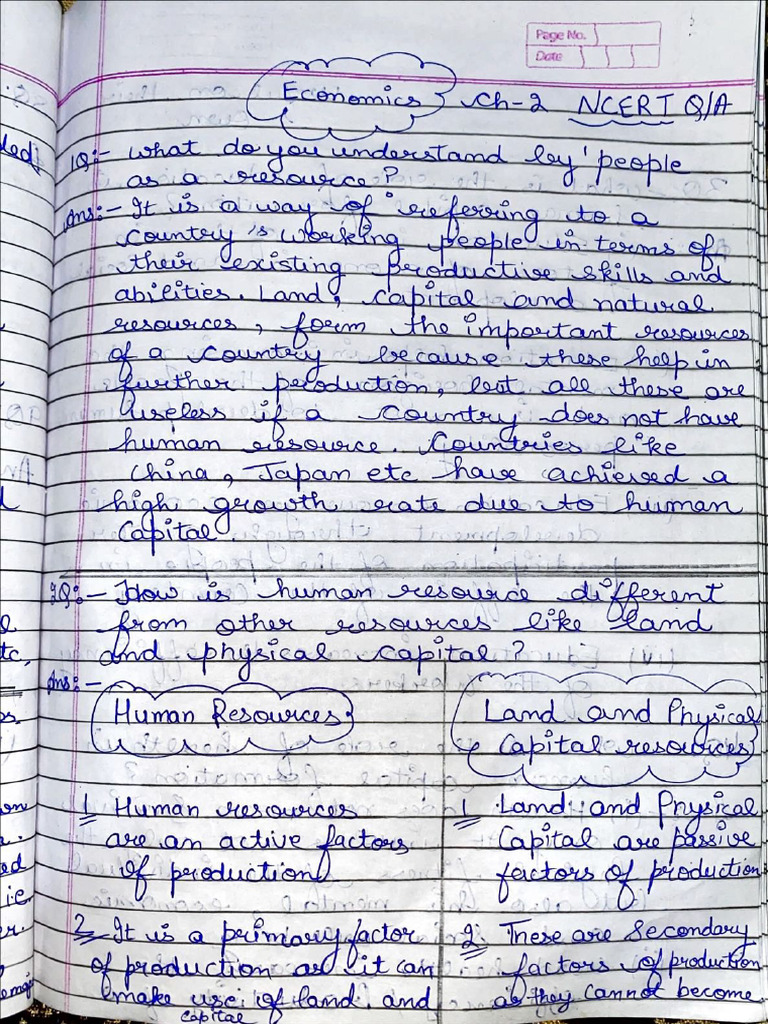 Page No.
Date
Economics Ch-2 NCERT Q/A
1Q:- What do you understand by 'people
as a resource?
Ans:- It is a way of 'referring to a
country's working people in terms of
their existing productive skills and
abilities. Land, capital and natural
resources, form the important resources
of a country because these help in
further production, but all these are
useless if a country does not have
human resource. Countries like
China, Japan etc have achieved a
high growth rate due to human
Capital.
Q:- How is human resource different
from other resources like land
and physical capital?
Ans:-
Human Resources.
1 Human resources
are an active factors
of production
2 It is a primary factor
of production as it can
make use of land and
capital
Land and Physical
Capital resources
1 Land and Physical
Capital are passive
factors of production
2 These are Secondary
factors of production
as they cannot become